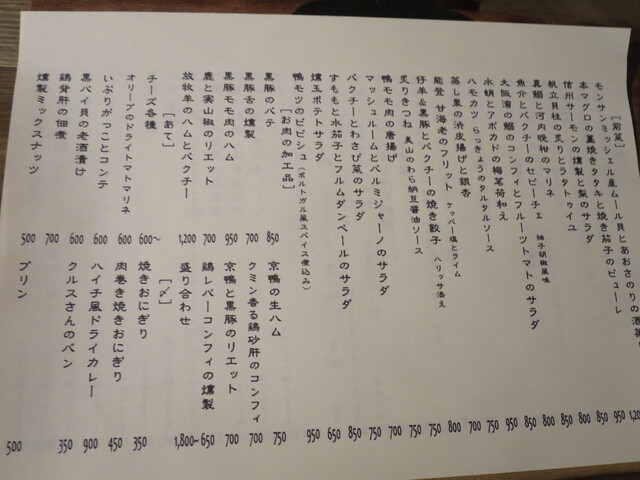 ［前菜］
モンサンミッシェル産ムール貝とあおさのりの酒蒸 1,20
本マグロの藁焼きタタキと焼き茄子のピューレ 950
信州サーモンの燻製と梨のサラダ 850
帆立貝柱の炙りとラタトゥイユ 800
真鯛と河内晩柑のマリネ 850
魚介とパクチーのセビーチェ 柚子胡椒風味 850
大阪湾の鱧のコンフィとフルーツトマトのサラダ 950
水蛸とアボカドの梅茗荷和え 750
ハモカツ らっきょうのタルタルソース 700
蒸し栗の渋皮揚げと銀杏 700
能登 甘海老のフリット ケッパー塩とライム 800
仔羊&黒豚とパクチーの焼き餃子 ハリッサ添え 750
炙りきつね 美山のわら納豆醤油ソース 750
鴨モモ肉の唐揚げ 700
マッシュルームとパルミジャーノのサラダ 750
パクチーとわさび菜のサラダ 850
すももと水茄子とフルムダンベールのサラダ
燻玉ポテトサラダ 650
鴨モツのピピシュ（ポルトガル風スパイス煮込み） 950
［お肉の加工品］
黒豚のパテ 850
黒豚舌の燻製 700
黒豚モモ肉のハム 950
鹿と実山椒のリエット 700
放牧羊のハムとパクチー 1,200
京鴨の生ハム 750
クミン香る鶏砂肝のコンフィ 700
京鴨と黒豚のリエット 700
鶏レバーコンフィの燻製 650
盛り合わせ 1,800~
［あて］
チーズ各種 600~
オリーブのドライトマトマリネ 600
いぶりがっことコンテ 600
黒バイ貝の老酒漬け 600
鶏背肝の佃煮 700
燻製ミックスナッツ 500
［〆］
焼きおにぎり 350
肉巻き焼きおにぎり 450
ハイチ風ドライカレー 900
クルスさんのパン 350
プリン 500